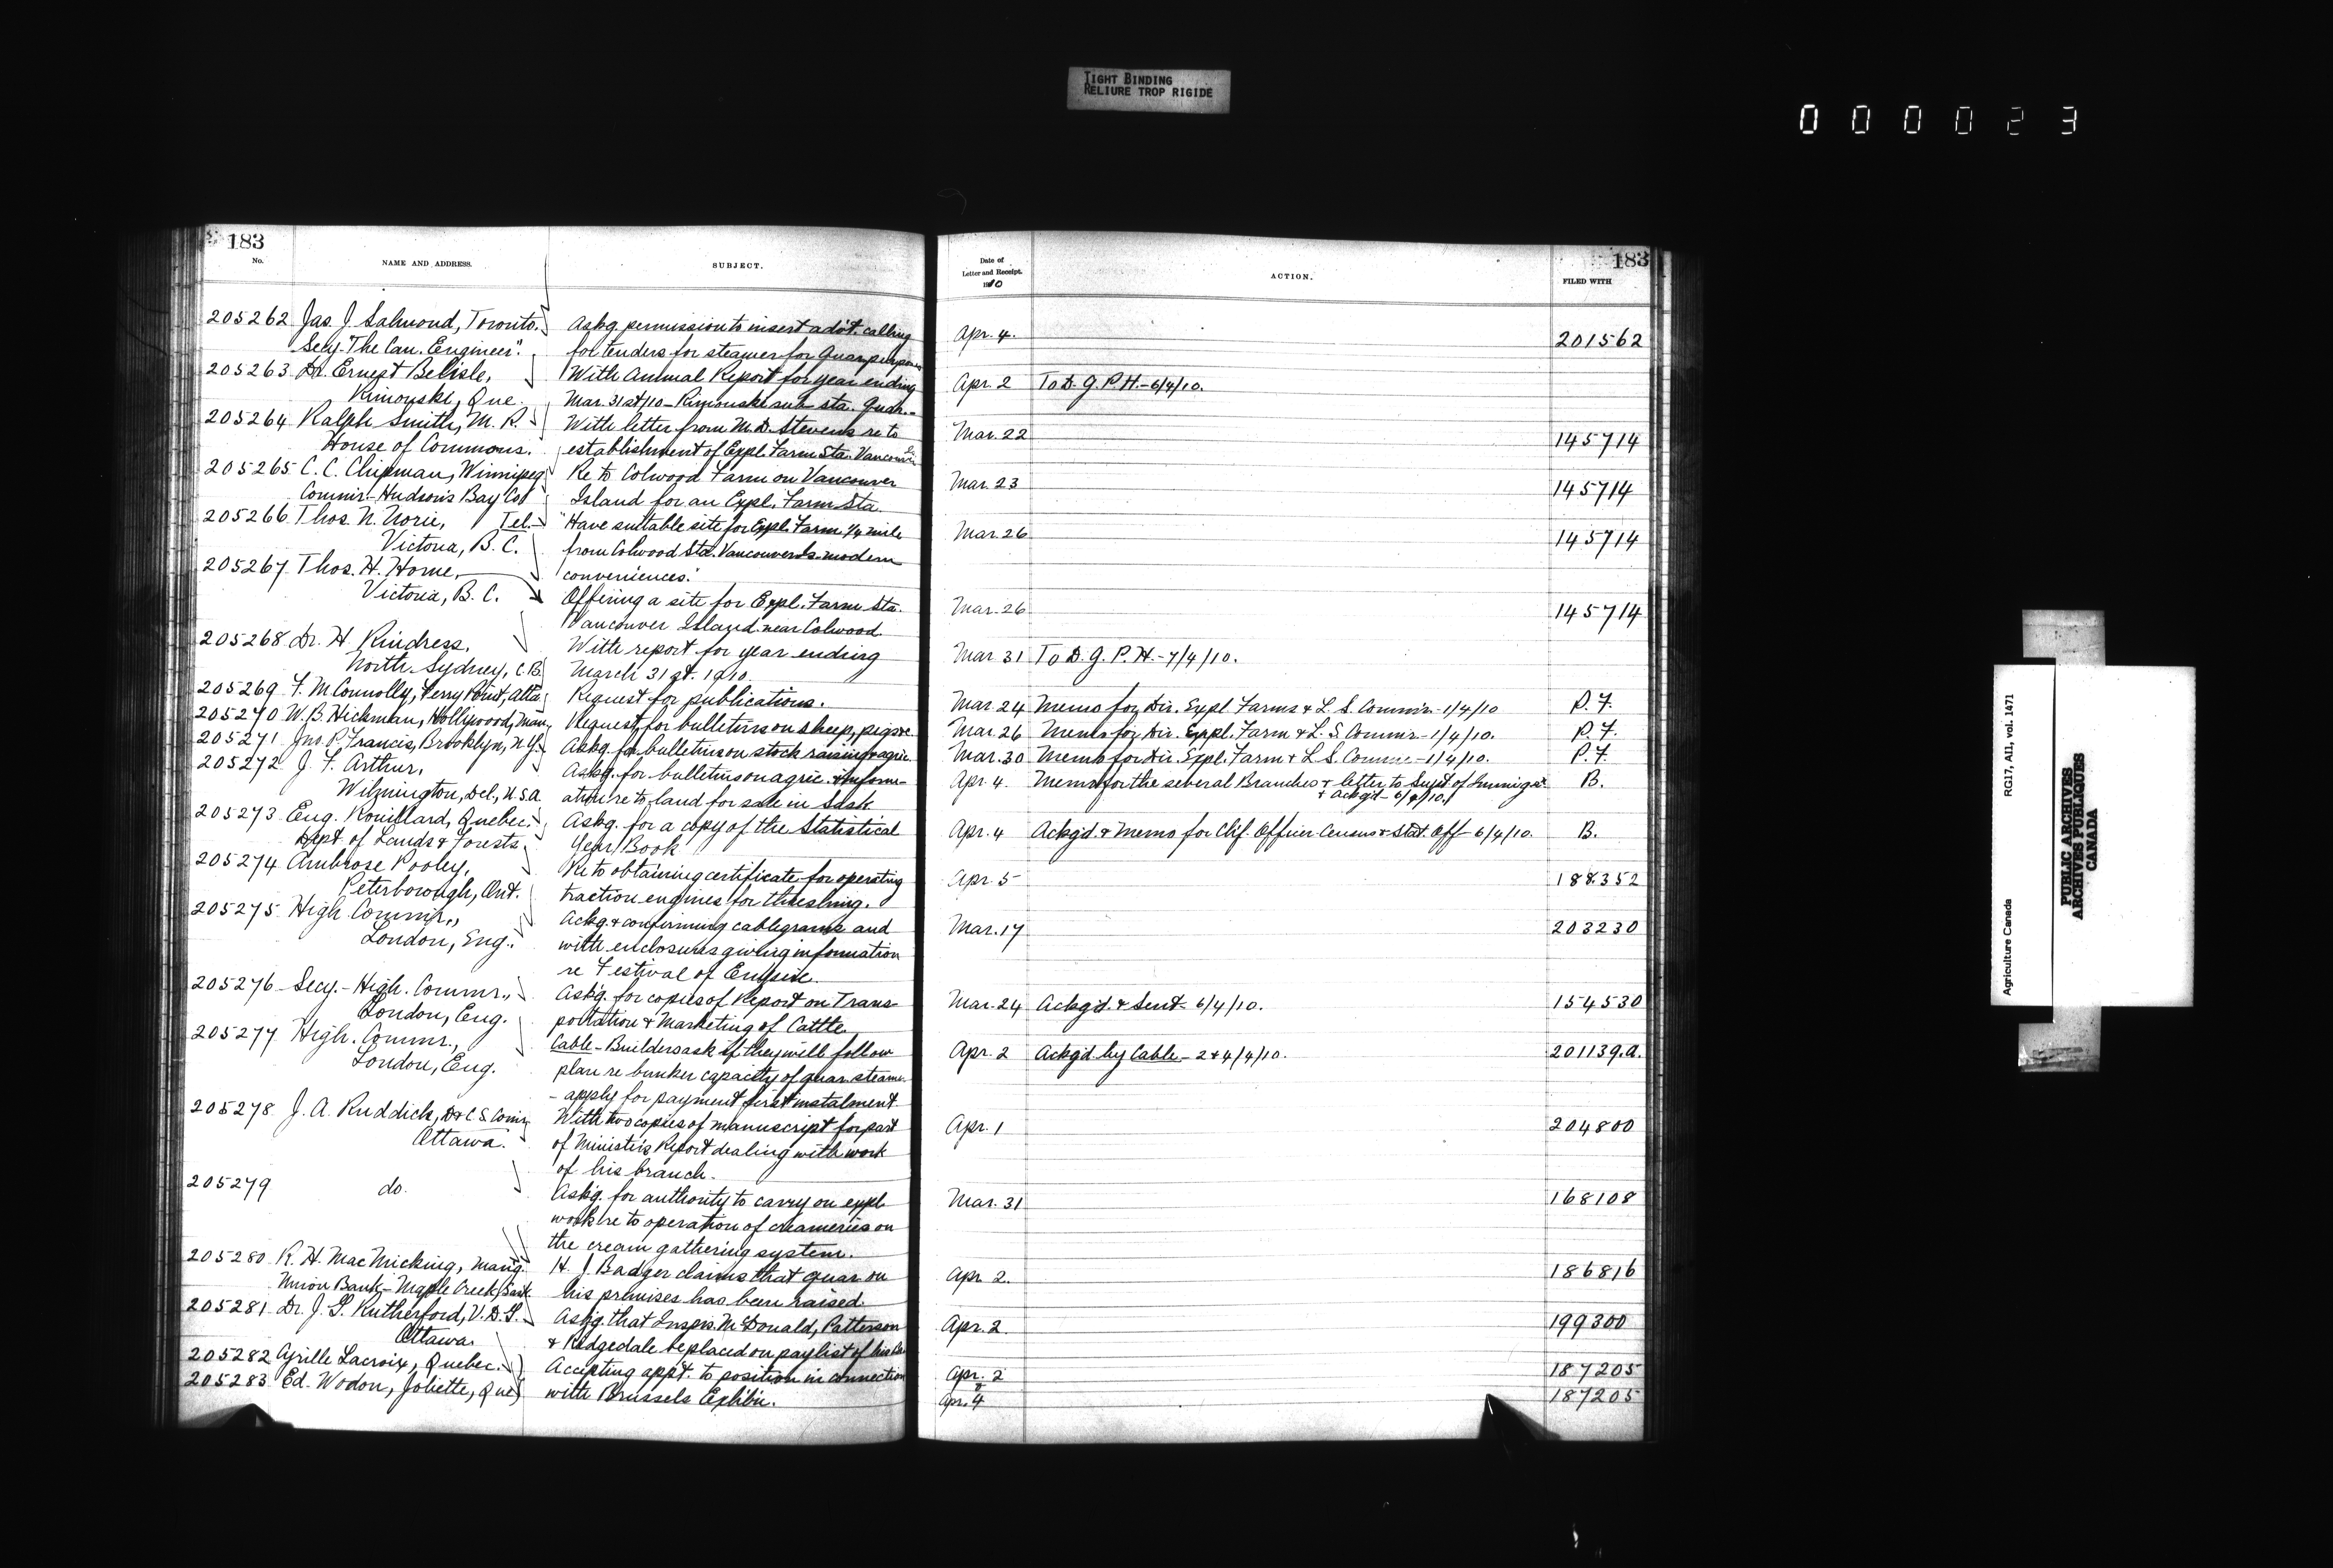 TIGHT BINDING
RELIURE TROP RIGIDE
000023
183
No.
NAME AND ADDRESS.
SUBJECT.
205262 Jas. J. Salmond, Toronto.
Secy. "The Can. Engineer".
Askg. permission to insert advt. calling
for tenders for steamer for Quar. purposes
205263 Dr. Ernest Belisle,
Rimouski, Que.
With Annual Report for year ending
Mar. 31st/10 - Rimouski sub sta. Quar.
205264 Ralph Smith, M. P.
House of Commons.
With letter from M. D. Stevens re to
establishment of Expl. Farm Sta. Vancouver
205265 C. C. Chipman, Winnipeg
Commir. - Hudson's Bay Co.
Re to Colwood Farm on Vancouver
Island for an Expl. Farm Sta.
205266 Thos. N. Norie, Tel.
Victoria, B. C.
"Have suitable site for Expl. Farm 1/4 mile
from Colwood Sta. Vancouver Is. modern
conveniences."
205267 Thos. H. Horne,
Victoria, B. C.
Offering a site for Expl. Farm Sta.
Vancouver Island near Colwood.
205268 Dr. H Kindress,
North Sydney, C. B.
With report for year ending
March 31st. 1910.
205269 F. McConnolly, Ferry Point, Alta.
Request for publications.
205270 W. B. Hickman, Hollywood, Man.
Request for bulletins on sheep, pigs &c.
205271 Jno. P. Francis, Brooklyn, N.Y.
Askg. for bulletins on stock raising & agric.
205272 J. F. Arthur,
Wilmington, Del., U.S.A.
Askg. for bulletins on agric. & inform-
ation re to land for sale in Sask.
205273 Eug. Rouillard, Quebec.
Dept. of Lands & Forests.
Askg. for a copy of the Statistical
Year Book
205274 Ambrose Pooley,
Peterborough, Ont.
Re to obtaining certificate for operating
traction engines for threshing.
205275 High Commir.,
London, Eng.
Ackg. & confirming cablegrams and
with enclosures giving information
re Festival of Empire.
205276 Secy. - High. Commr.,
London, Eng.
Askg. for copies of Report on Trans-
portation & Marketing of Cattle
205277 High. Commr.,
London, Eng.
Cable - Builders ask if they will follow
plan re bunker capacity of quar. steamer
- apply for payment first instalment.
205278 J. A. Ruddick, D & C. S. Comr.
Ottawa.
With two copies of manuscript for part
of Minister's Report dealing with work
of his branch.
205279 do.
Askg. for authority to carry on expl.
work re to operation of creameries on
the cream gathering system.
205280 R. H. MacMicking, Mang.
Union Bank - Maple Creek, Sask.
H. J. Badger claims that quar. on
his premises has been raised.
205281 Dr. J. G. Rutherford, V. D. G.
Ottawa.
Askg. that Insprs. McDonald, Patterson
& Ridgedale be placed on paylist of his
205282 Cyrille Lacroix, Quebec.
205283 Ed. Wodon, Joliette, Que.
Accepting appt. to position in connection
with Brussels Exhibn.
183
Date of
Letter and Receipt.
1910
ACTION.
FILED WITH
Apr. 4. 201562
Apr. 2 To D. G. P. H. - 6/4/10.
Mar. 22 145714
Mar. 23 145714
Mar. 26 145714
Mar. 26 145714
Mar 31 To D. G. P. H. - 7/4/10.
Mar. 24 Memo for Dir. Expl. Farms & L. S. Commir. - 1/4/10 P. F.
Mar. 26 Memo for Dir. Expl. Farm & L. S. Commir. - 1/4/10. P. F.
Mar. 30 Memo for Dir. Expl. Farm & L. S. Commr. - 1/4/10. P. F.
Apr. 4. Memo for the several Branches & letter to Supt of Immigr. B.
& Ackg'd - 6/4/10.
Apr. 4 Ackg'd. & Memo for Chf. Officer Census & Stat. Off - 6/4/10. B.
Apr. 5 188352
Mar. 17 203230
Mar. 24 Ackg'd. & Sent - 6/4/10. 154530
Apr. 2 Ackg'd by Cable - 2 & 4/4/10. 201139.a.
Apr. 1 204800
Mar. 31 168108
Apr. 2. 186816
Apr. 2. 199300
Apr. 2 187205
&
Apr. 4 187205
Agriculture Canada
RG17, AII, vol. 1471
PUBLIC ARCHIVES
ARCHIVES PUBLIQUES
CANADA